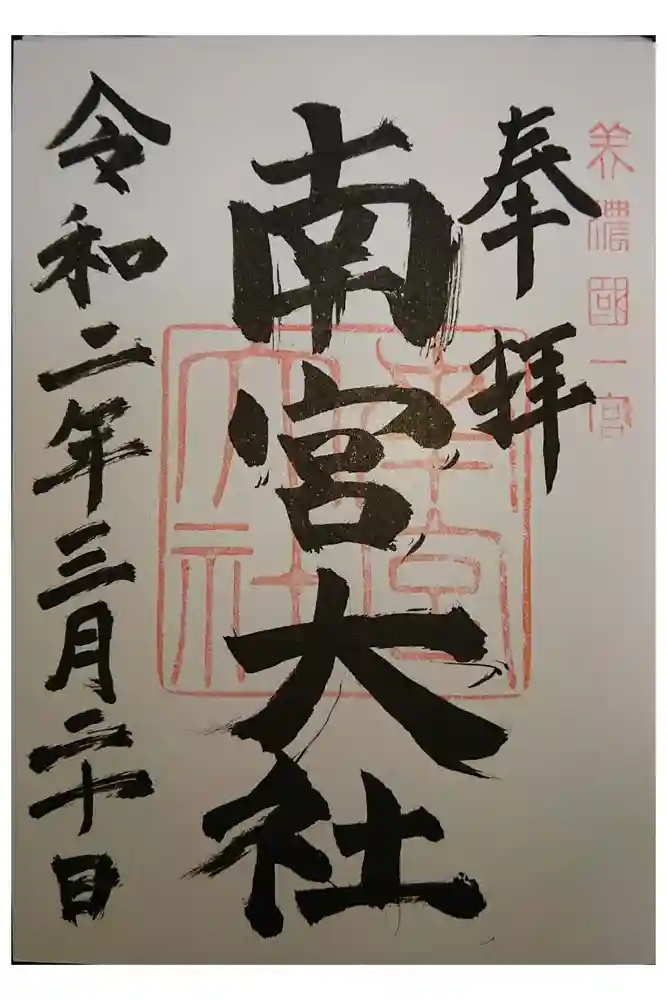 美濃國一宮
奉拝
南宮大社
令和二年三月二十日
南宮大社